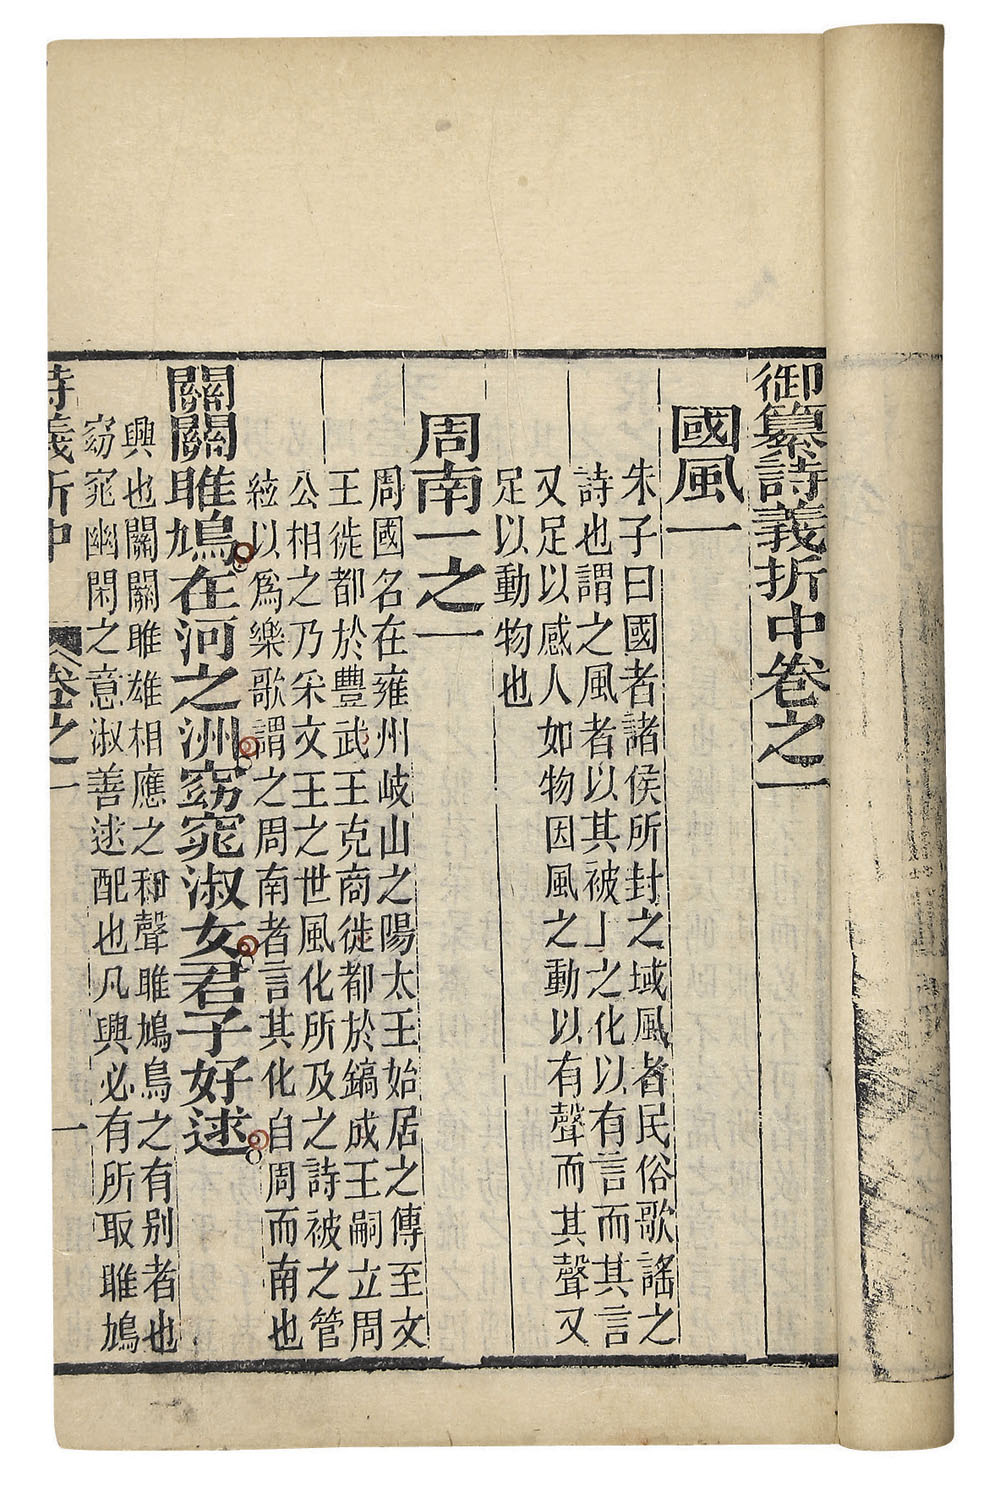 御纂詩義折中卷之一
國風一
朱子曰國者諸侯所封之域風者民俗歌謠之
詩也謂之風者以其被上之化以有言而其言
又足以感人如物因風之動以有聲而其聲又
足以動物也
周南一之一
周國名在雍州岐山之陽太王始居之傳至文
王徙都於豐武王克商徙都於鎬成王嗣立周
公相之乃采文王之世風化所及之詩被之管
絃以爲樂歌謂之周南者言其化自周而南也
關關雎鳩在河之洲窈窕淑女君子好逑
興也關關雌雄相應之和聲雎鳩鳥之有别者也
窈窕幽閑之意淑善逑配也凡興必有所取雎鳩
詩義折中 卷之一 一